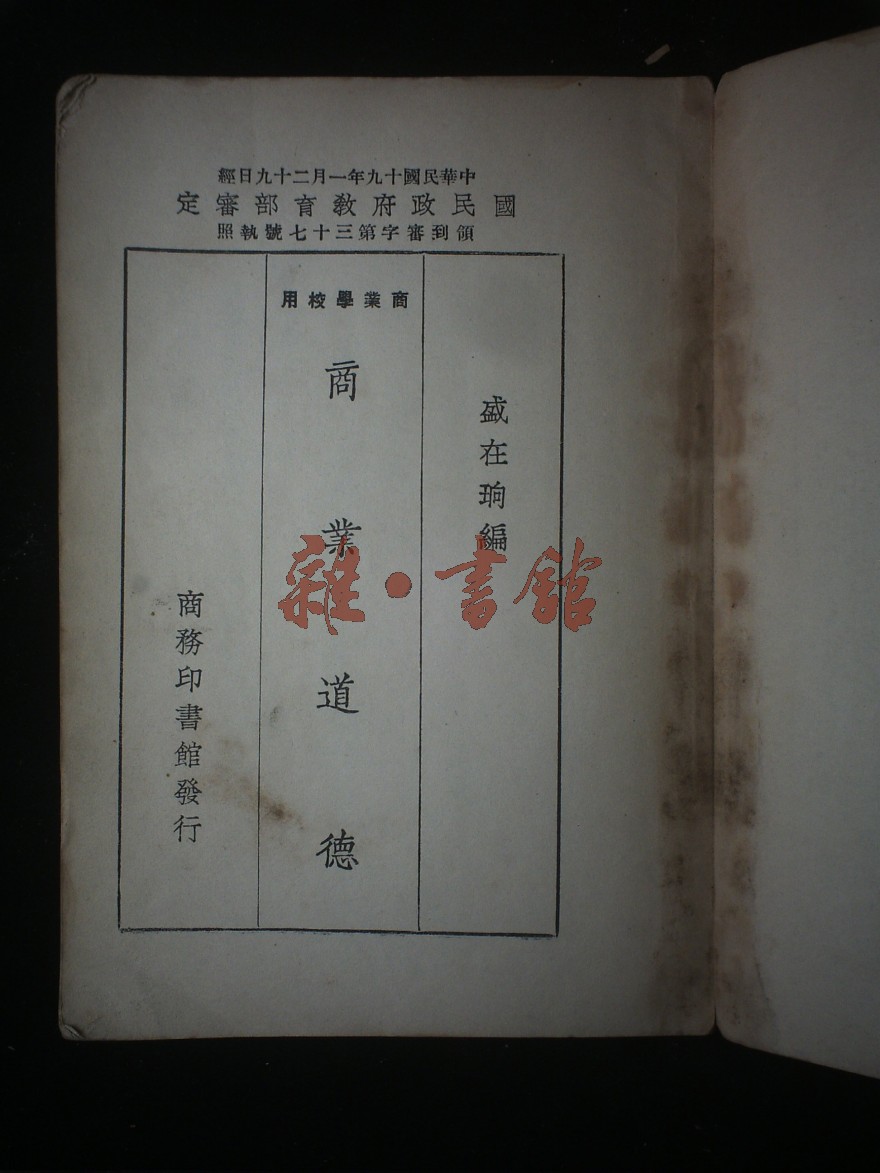 中華民國十九年一月二十九日經
國民政府教育部審定
領到審字第三十七號執照
盛在珦編
商業學校用
商業道德
商務印書館發行
雜·書館